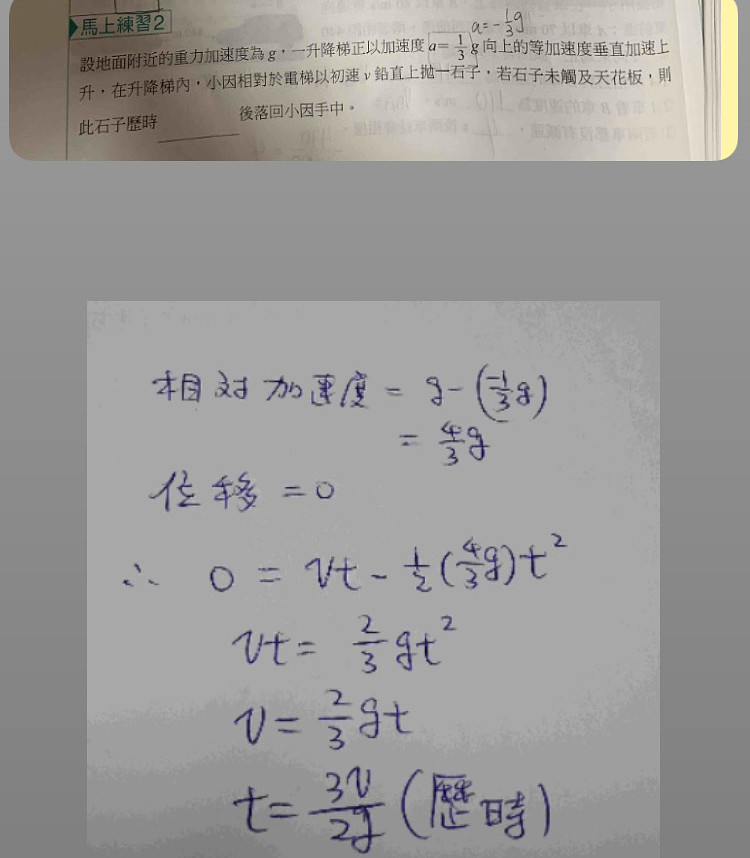 馬上練習2
a=-1/3g
設地面附近的重力加速度為g,一升降梯正以加速度a=1/3g向上的等加速度垂直加速上
升,在升降梯內,小因相對於電梯以初速v鉛直上拋一石子,若石子未觸及天花板,則
此石子歷時______後落回小因手中。
相对加速度=g-(-1/3g)
=4/3g
位移=0
∴ 0=vt-1/2(4/3g)t²
vt=2/3gt²
v=2/3gt
t=3v/2g(歷時)